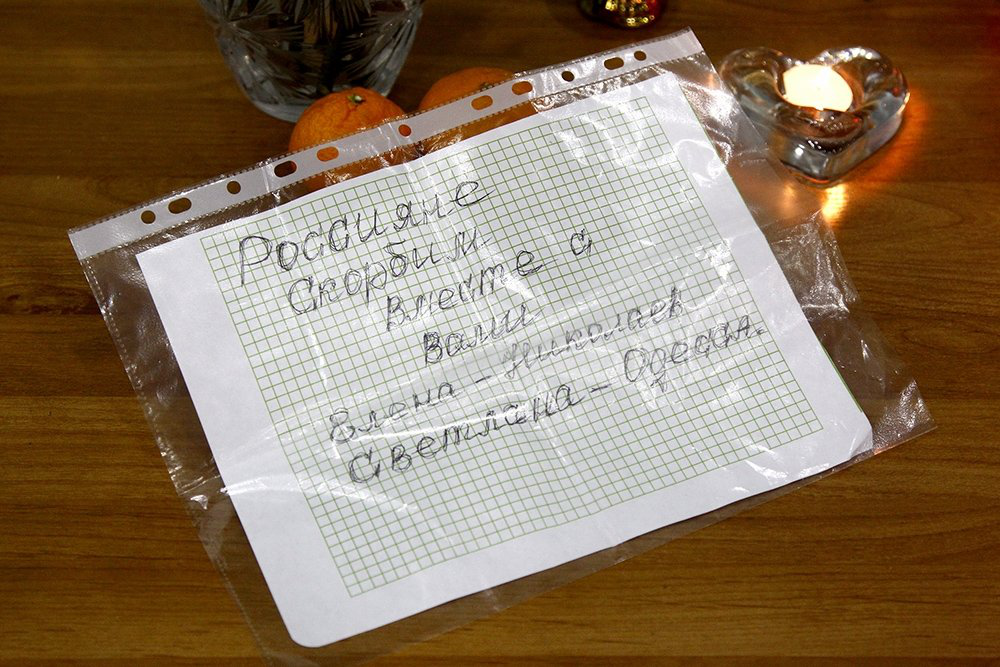 Россияне
скорбим
вместе с
вами
Елена - Николаев
Светлана - Одесса.